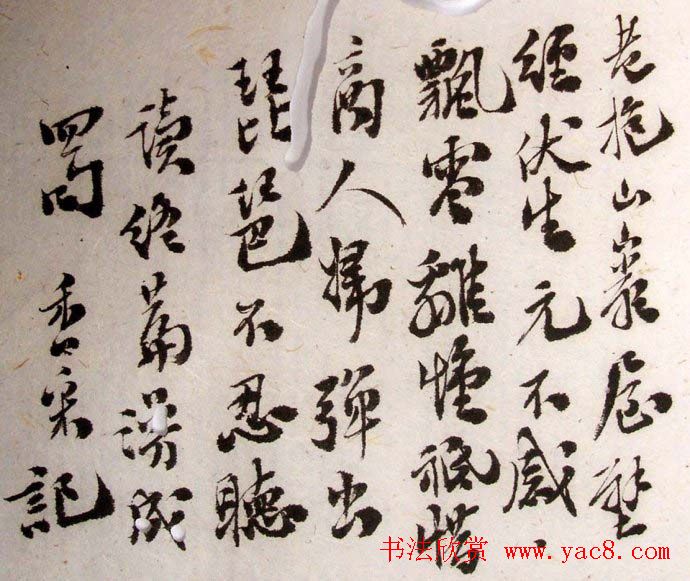 老抱山巖屋壁
經伏生元不感
飄零離祗惜
商人婦彈出
琵琶不忍聽
讀終篇漫成
蜀香宋記
书法欣赏 www.yac8.com